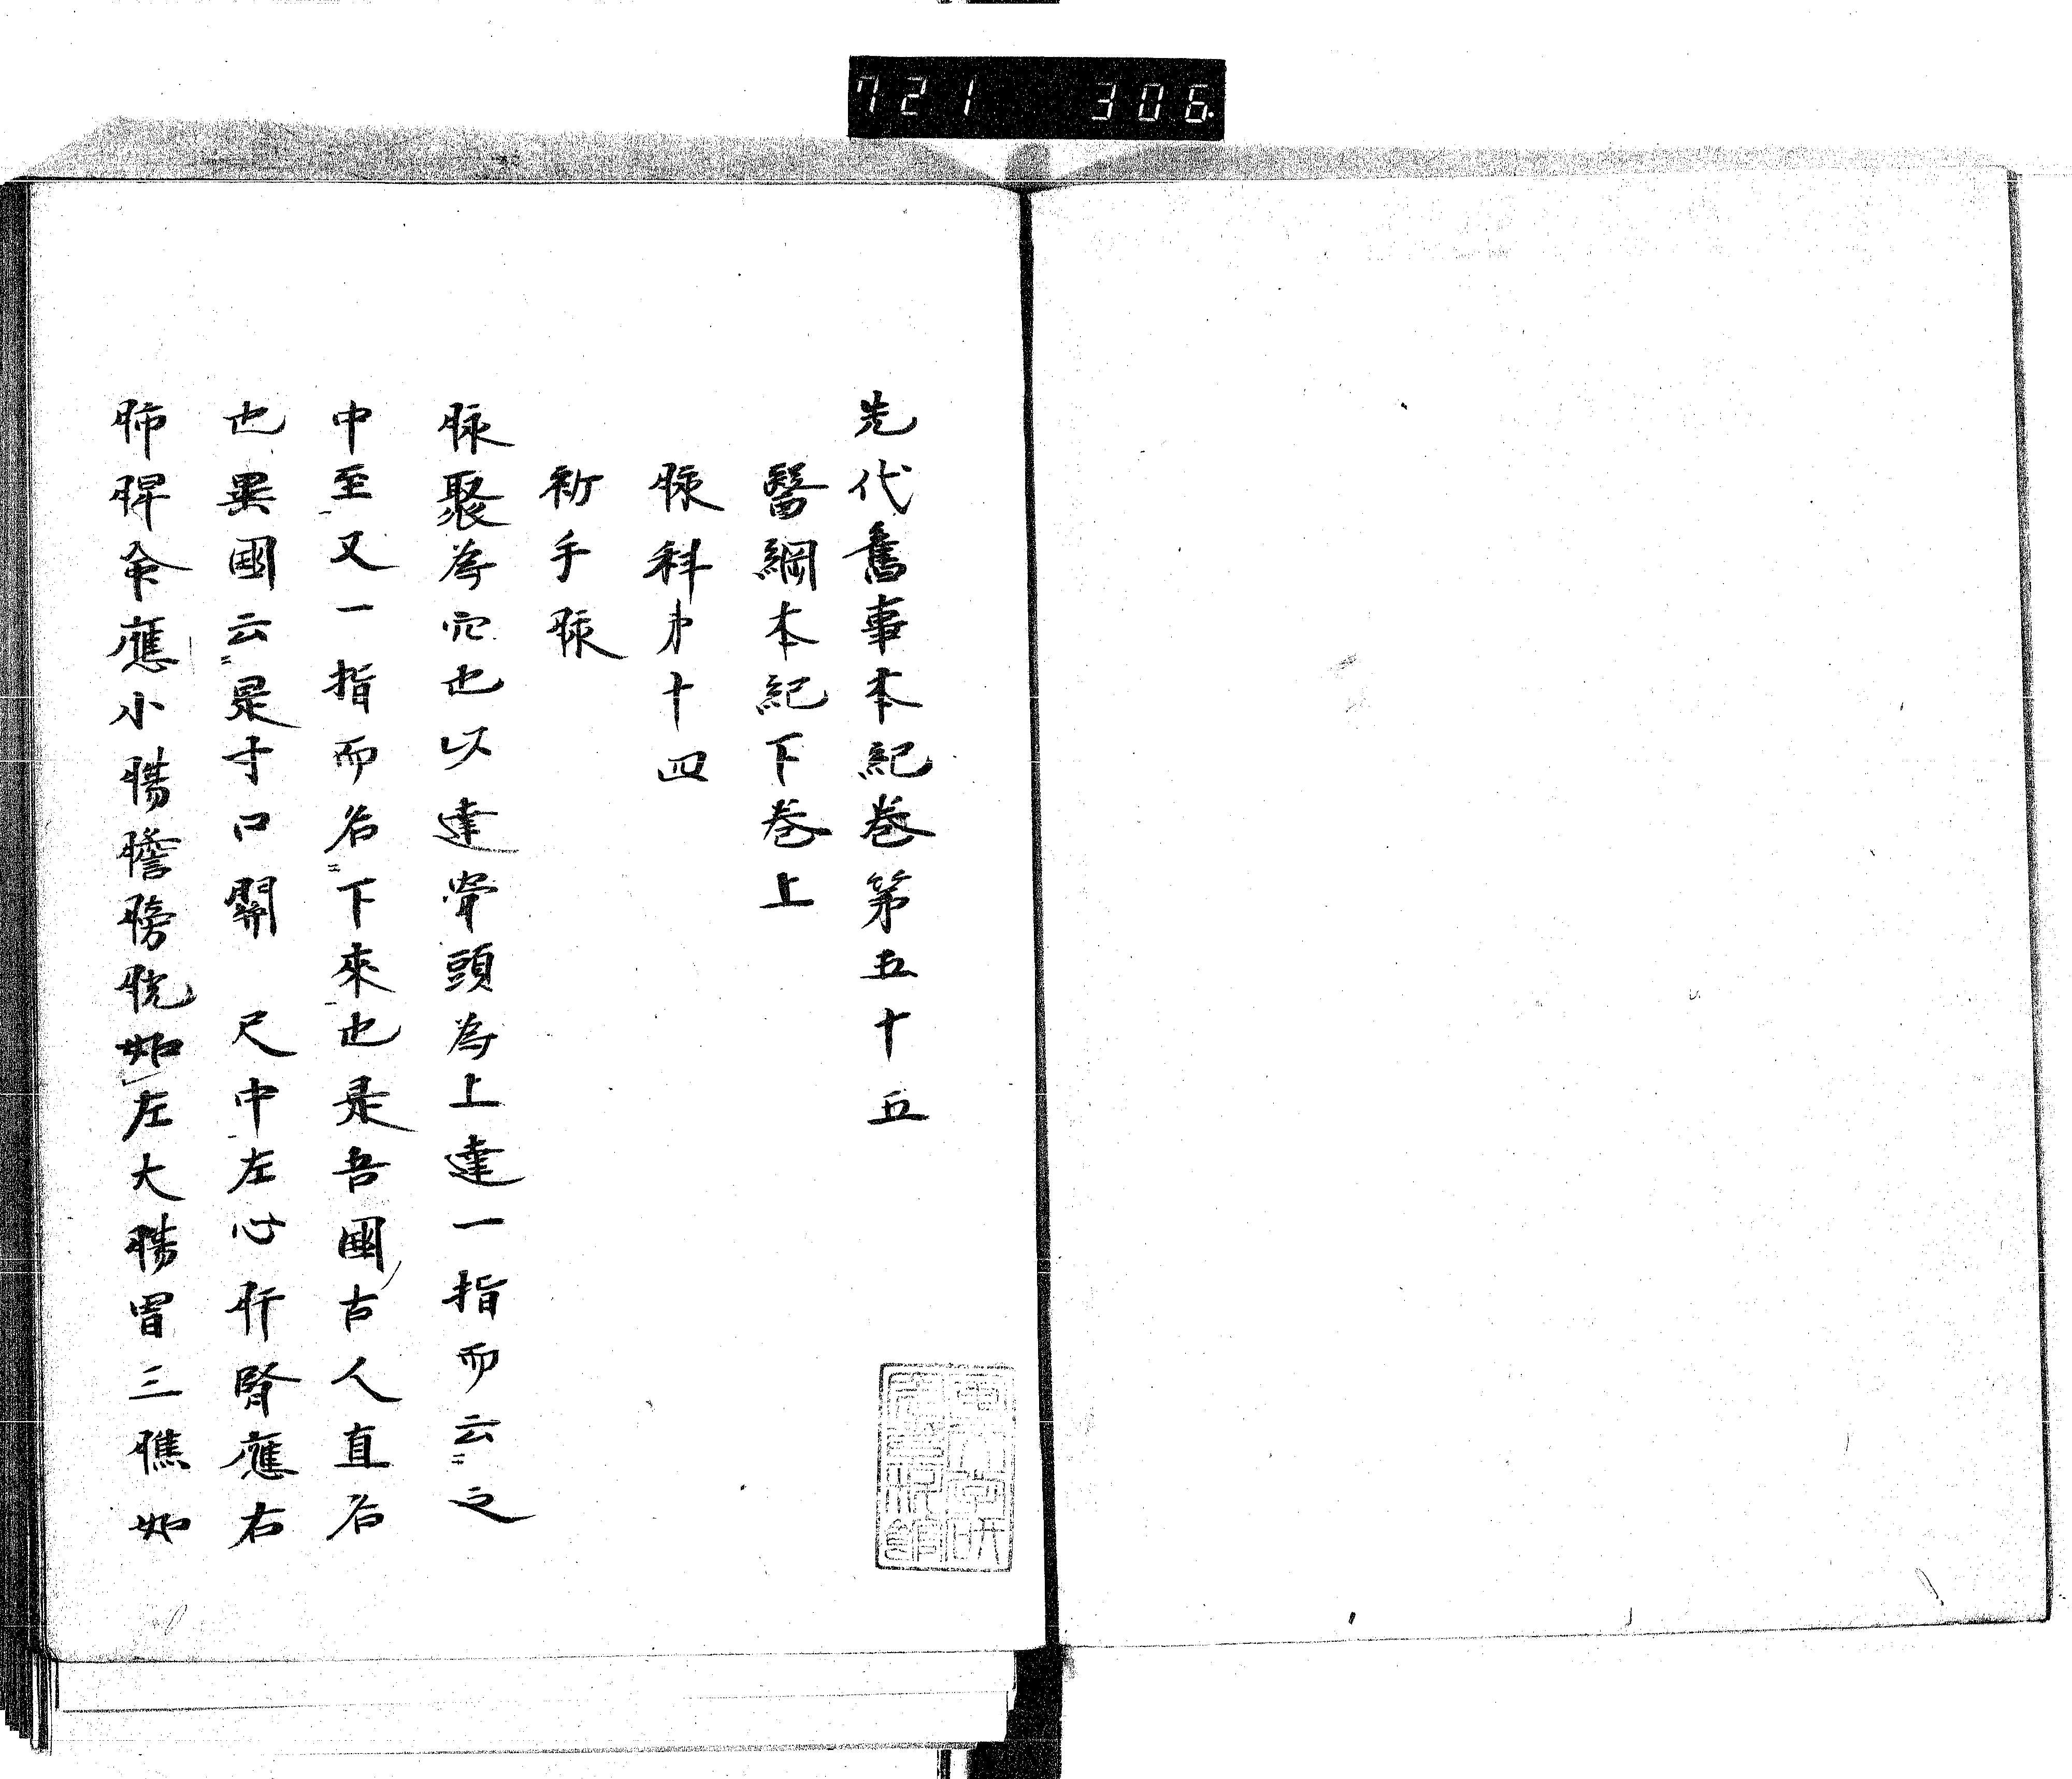 721 306
先代舊事本紀巻第五十五
醫綱本紀下巻上
脉科才十四
初手脉
脉聚為穴也以達骨頭為上達一指而云之
中至又一指而名下來也是吾國古人直名
也異國云是寸口關 尺中左心肝腎應右
肺脾命應小腸膽膀胱如左大腸胃三膲如